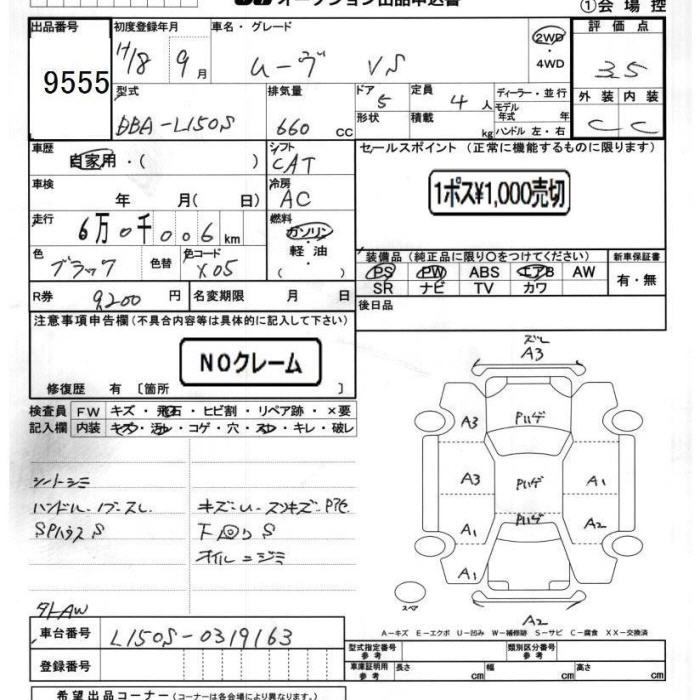 オークション出品申込書
①会場控
出品番号 初度登録年月 車名・グレード 評価点
9555 H18 9月 ムーヴ VS 2WD・4WD 3.5
型式 排気量 ドア 定員 ディーラー・並行 外装 内装
DBA-L150S 660 CC 5 4人 モデル年式 年 C C
形状 積載 kg ハンドル 左・右
車歴 シフト セールスポイント (正常に機能するものに限ります)
自家用・( ) CAT
1ポス¥1,000売切
車検 年 月( 日) 冷房 AC
走行 6万0千006km 燃料 ガソリン・軽油 ( )
色 ブラック 色替 色コード X05
装備品 (純正品に限り○をつけてください) 新車保証書
PS PW ABS エアB AW 有・無
SR ナビ TV カワ
R券 9,200円 名変期限 月 日 後日品
注意事項申告欄(不具合内容等は具体的に記入して下さい)
NOクレーム
修復歴 有 〔箇所 〕
検査員 FW キズ・飛石・ヒビ割・リペア跡・×要
記入欄 内装 キズ・汚れ・コゲ・穴・スレ・キレ・破レ
シートシミ
SPハウス S
下回りS
A3
A3
A3 A1
A1 A2
A1
スペア A2
A-キズ E-エクボ U-凹み W-補修跡 S-サビ C-腐食 XX-交換済
車台番号 L150S-0319163
登録番号
型式指定番号 参考 類別区分番号 参考
車庫証明用 参考 長さ cm 幅 cm 高さ cm
希望出品コーナー(コーナーは各会場により異なります。)